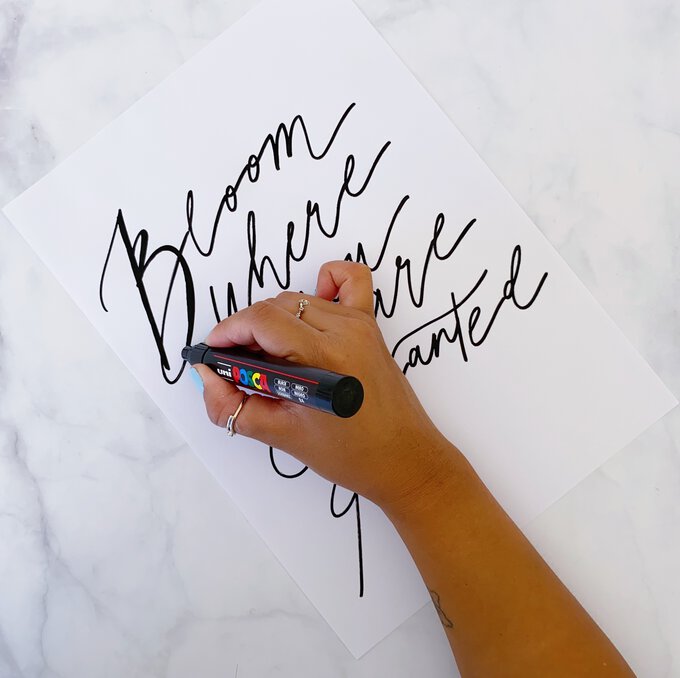 Bloom
where
are
planted
uni POSCA